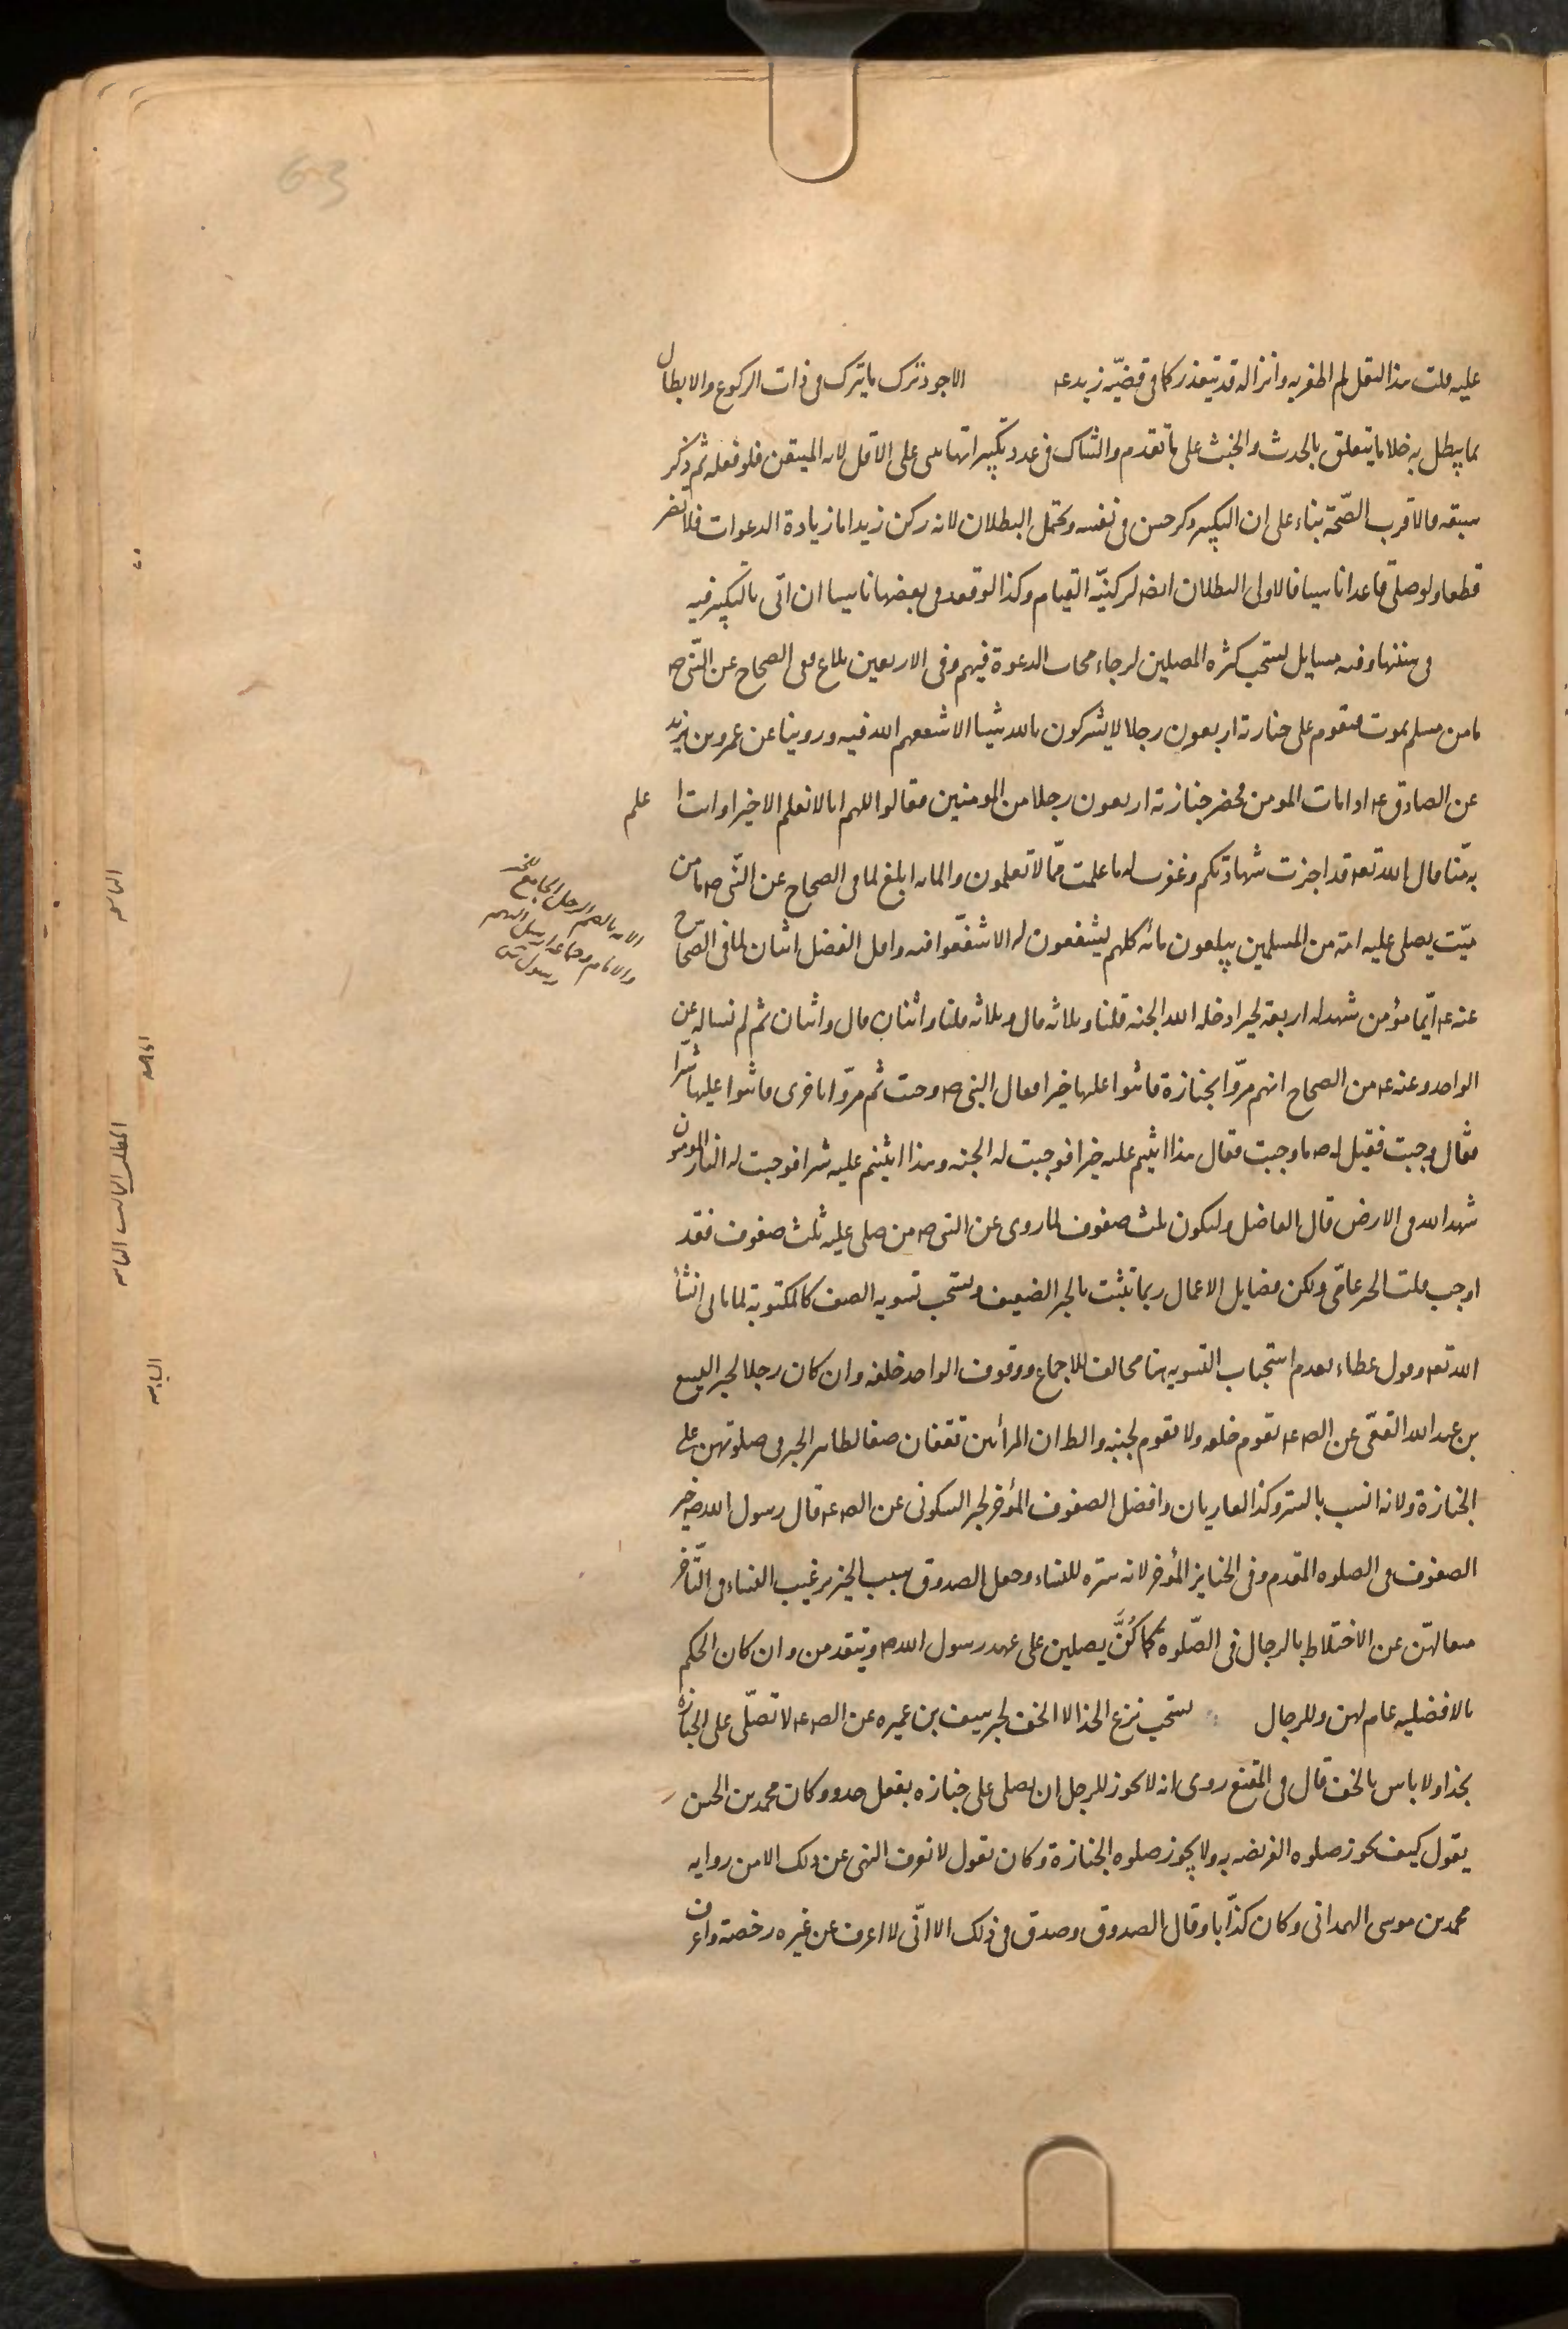 عليه قلت هذا النقل لم اظفر به وانزاله قد يتعذر كما فى قضيّة زيد عه الاجود ترك ما يترك فى ذات الركوع والابطال
بما يبطل به خلا ما يتعلق بالحدث والخبث على ما تقدم والشاك فى عدد تكبيراتها يبنى على الاقل لانه المتيقن فلو فعله ثم ذكر
سبقه فالاقرب الصّحة بناء على ان التكبير ذكر حسن فى نفسه ويحتمل البطلان لانه ركن زيد اما زيادة الدعوات فلا تضر
قطعا ولو صلى قاعدا ناسيا فالاولى البطلان ايضا لركنيّة القيام وكذا لو قعد فى بعضها ناسيا ان اتى بالتكبير فيه
فى سننها وفيه مسايل يستحب كثرة المصلين لرجاء مجاب الدعوة فيهم وفى الاربعين بلاغ ففى الصحاح عن النّبى ص
ما من مسلم يموت فيقوم على جنازته اربعون رجلا لا يشركون بالله شيئا الا شفعهم الله فيه وروينا عن عمرو بن يزيد
عن الصادق عه اذا مات المومن فحضر جنازته اربعون رجلا من المومنين فقالوا اللهم انا لا نعلم الا خيرا وانت ا علم
به منّا قال الله تعه قد اجزت شهادتكم وغفرت له ما علمت ممّا لا تعلمون والمائة ابلغ لما فى الصحاح عن النّبى ص ما من
ميّت يصلى عليه امة من المسلمين يبلغون مائة كلهم يشفعون له الا شفّعوا فيه واقل الفضل اثنان لما فى الصّحاح
عنه عه ايّما مؤمن شهد له اربعة بخير ادخله الله الجنه قلنا وثلاثه قال وثلاثه قلنا واثنان قال واثنان ثم لم نساله عن
الواحد وعنه عه من الصحاح انهم مرّوا بجنازة فاثنوا عليها خيرا فقال النبى ص وجبت ثم مرّوا باخرى فاثنوا عليها شرّا
فقال وجبت فقيل له ص ما وجبت فقال هذا اثنيتم عليه خيرا فوجبت له الجنه وهذا اثنيتم عليه شرا فوجبت له النار المومنون
شهداء الله فى الارض قال الفاضل وليكون ثلث صفوف لما روى عن النبى ص من صلى عليه ثلث صفوف فقد
اوجب قلت الخبر عامّى ولكن فضايل الاعمال ربما تثبت بالخبر الضعيف ويستحب تسويه الصف كالمكتوبة لما ياتى انشا
الله تعه وقول عطاء بعدم استحباب التسويه هنا مخالف للاجماع ووقوف الواحد خلفه وان كان رجلا لخبر اليسع
بن عبد الله القمّى عن الصه عه يقوم خلفه ولا يقوم بجنبه والظ ان المرأتين تقفان صفا لظاهر الخبر فى صلوتهن على
الجنازة ولانه انسب بالستر وكذا العاريان وافضل الصفوف المؤخر لخبر السكونى عن الصه عه قال رسول الله ص خير
الصفوف فى الصلوه المقدم وفى الجنايز المؤخر لانه ستره للنساء وجعل الصدوق سبب الخبر ترغيب النساء فى التّاخر
منعا لهنّ عن الاختلاط بالرجال فى الصّلوة كما كُنَّ يصلين على عهد رسول الله ص ويتقدمن وان كان الحكم
بالافضليه عام لهن وللرجال يستحب نزع الحذا لا الخف لخبر سيف بن عميره عن الصه عه لا تصلّى على الجنازة
بحذا ولا باس بالخف قال فى المقنع روى انه لا يجوز للرجل ان يصلى على جنازه بنعل حذو وكان محمد بن الحسن
يقول كيف يجوز صلوه الفريضه به ولا يجوز صلوه الجنازة وكان يقول لا نعرف النهى عن ذلك الا من روايه
محمد بن موسى الهمدانى وكان كذّابا وقال الصدوق وصدق فى ذلك الا انّى لا اعرف عن غيره رخصة واعرف